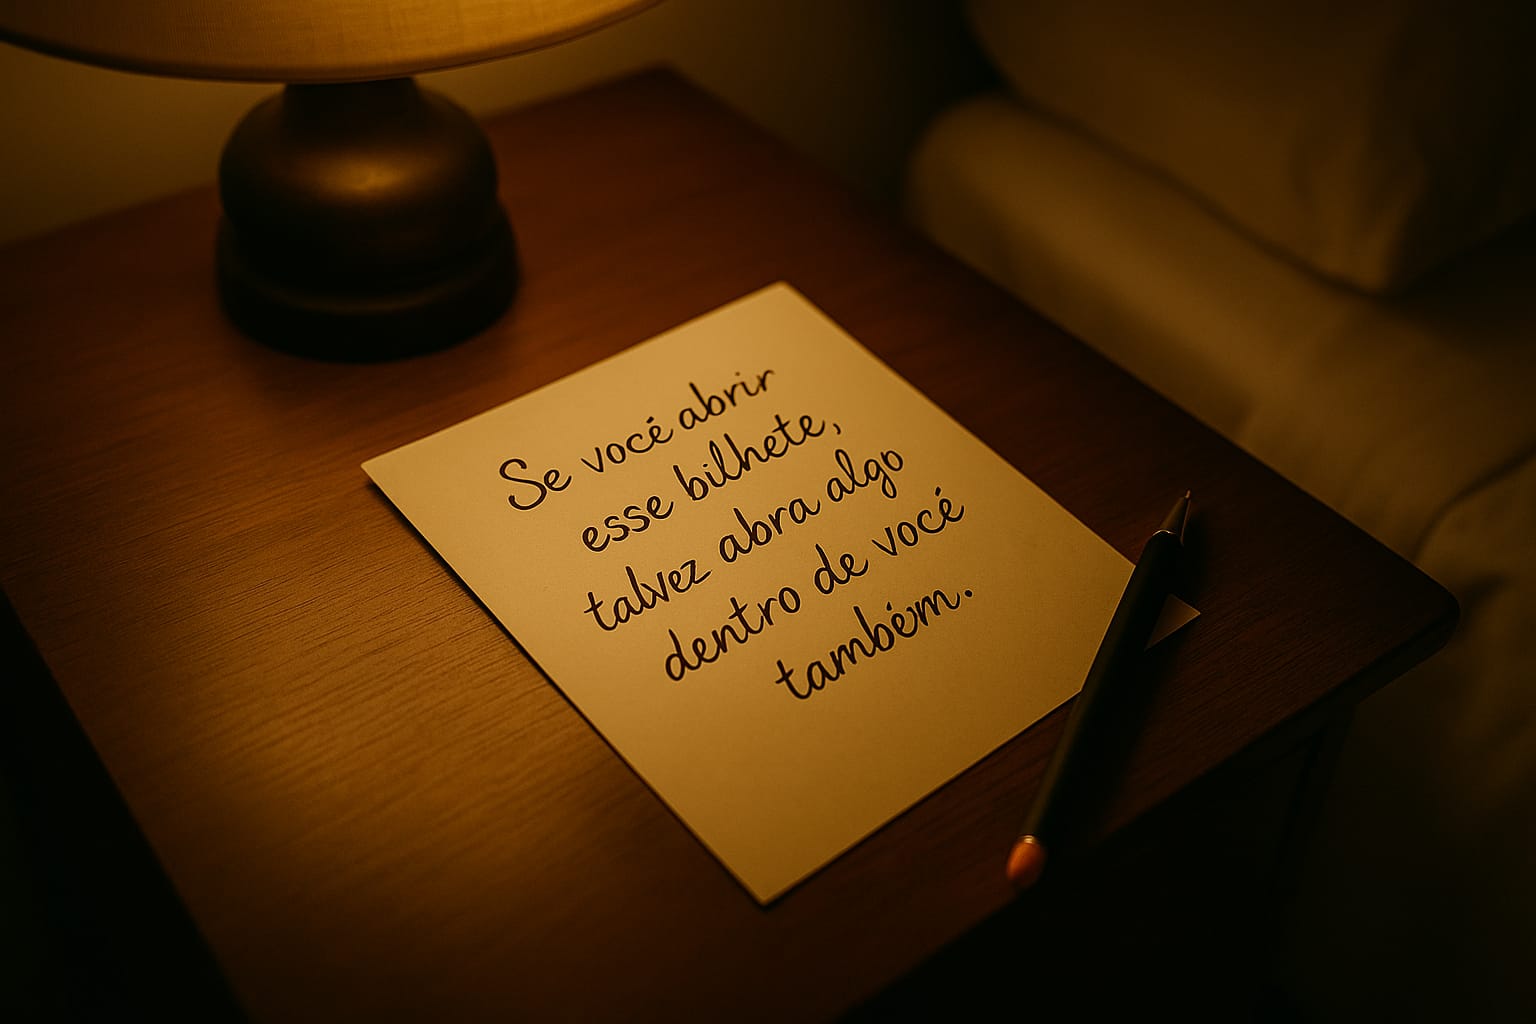 Se você abrir
esse bilhete,
talvez abra algo
dentro de você
também.